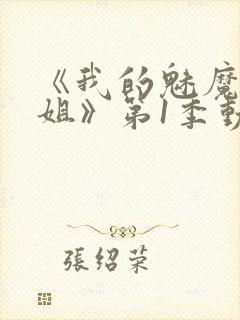 《我的魅魔
姐》第1季動
張绍荣